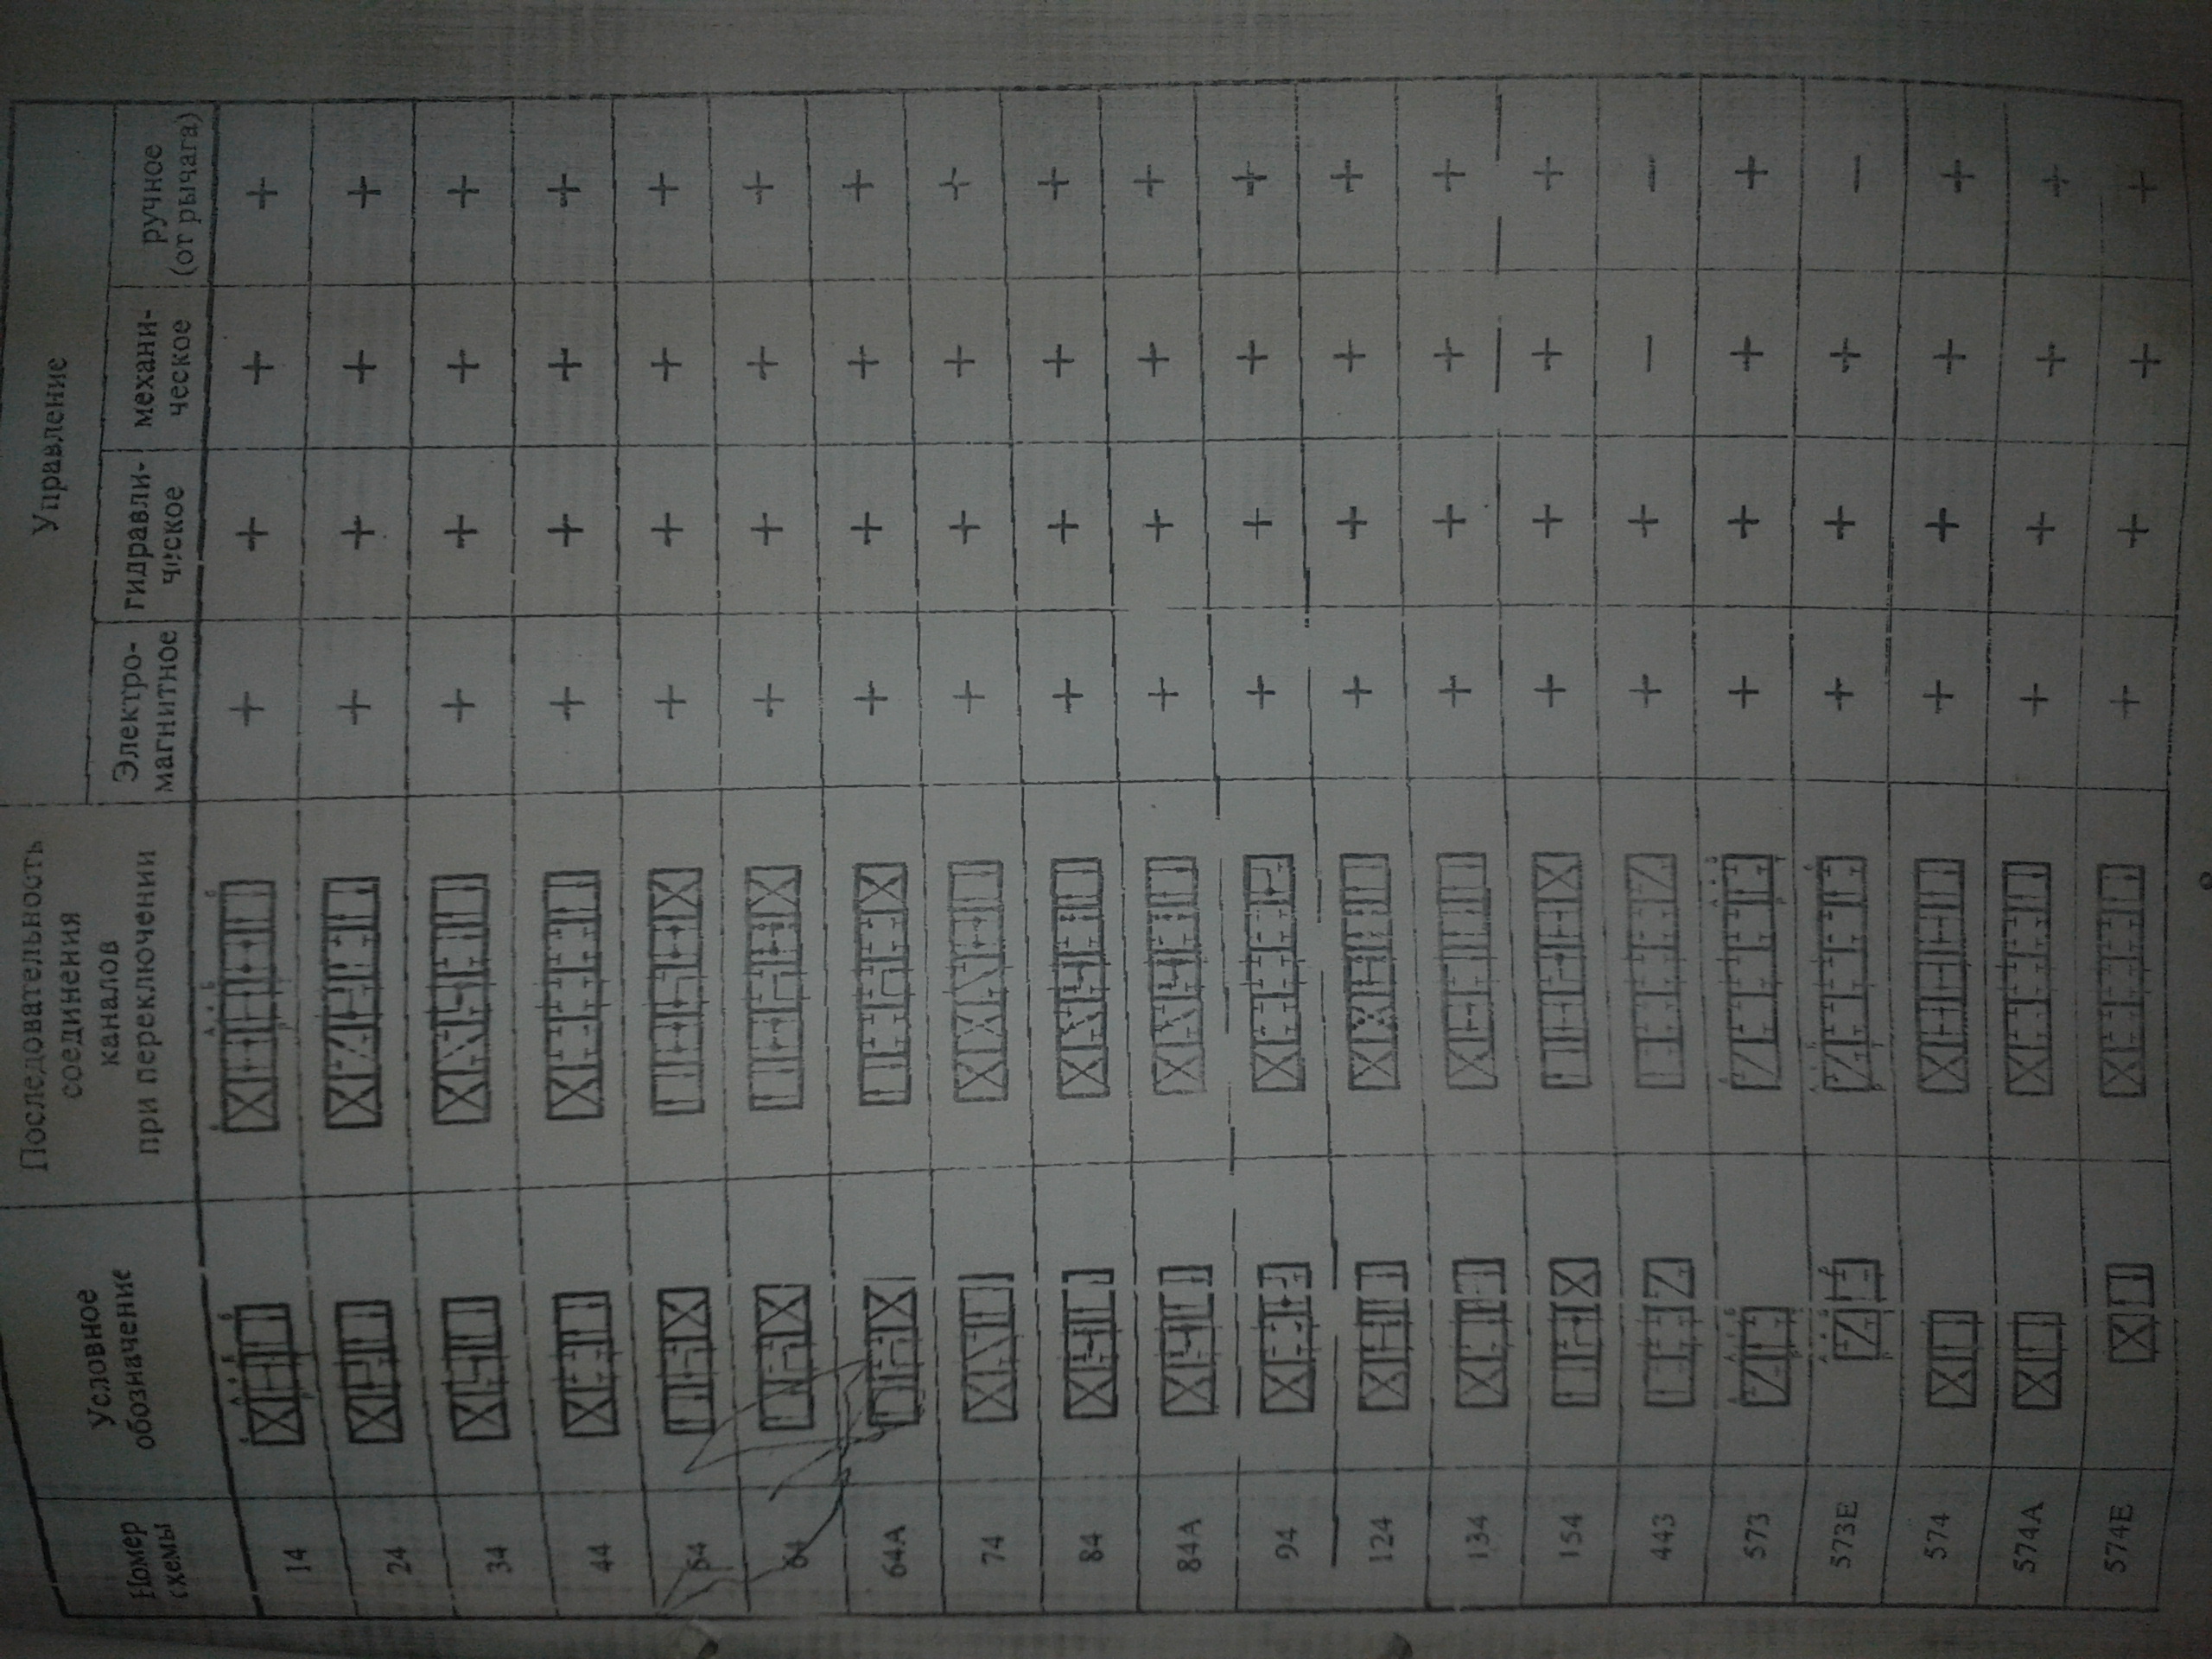 Номер
схемы
Условное
обозначение
Последовательность
соединения
каналов
при переключении
Управление
Электро-
магнитное
гидравли-
ческое
механи-
ческое
ручное
(от рычага)
14 + + + +
24 + + + +
34 + + + +
44 + + + +
54 + + + +
64 + + + +
64А + + + +
74 + + + +
84 + + + +
84А + + + +
94 + + + +
124 + + + +
134 + + + +
154 + + + +
443 + + — —
573 + + + +
573Е + + + —
574 + + + +
574А + + + +
574Е + + + +